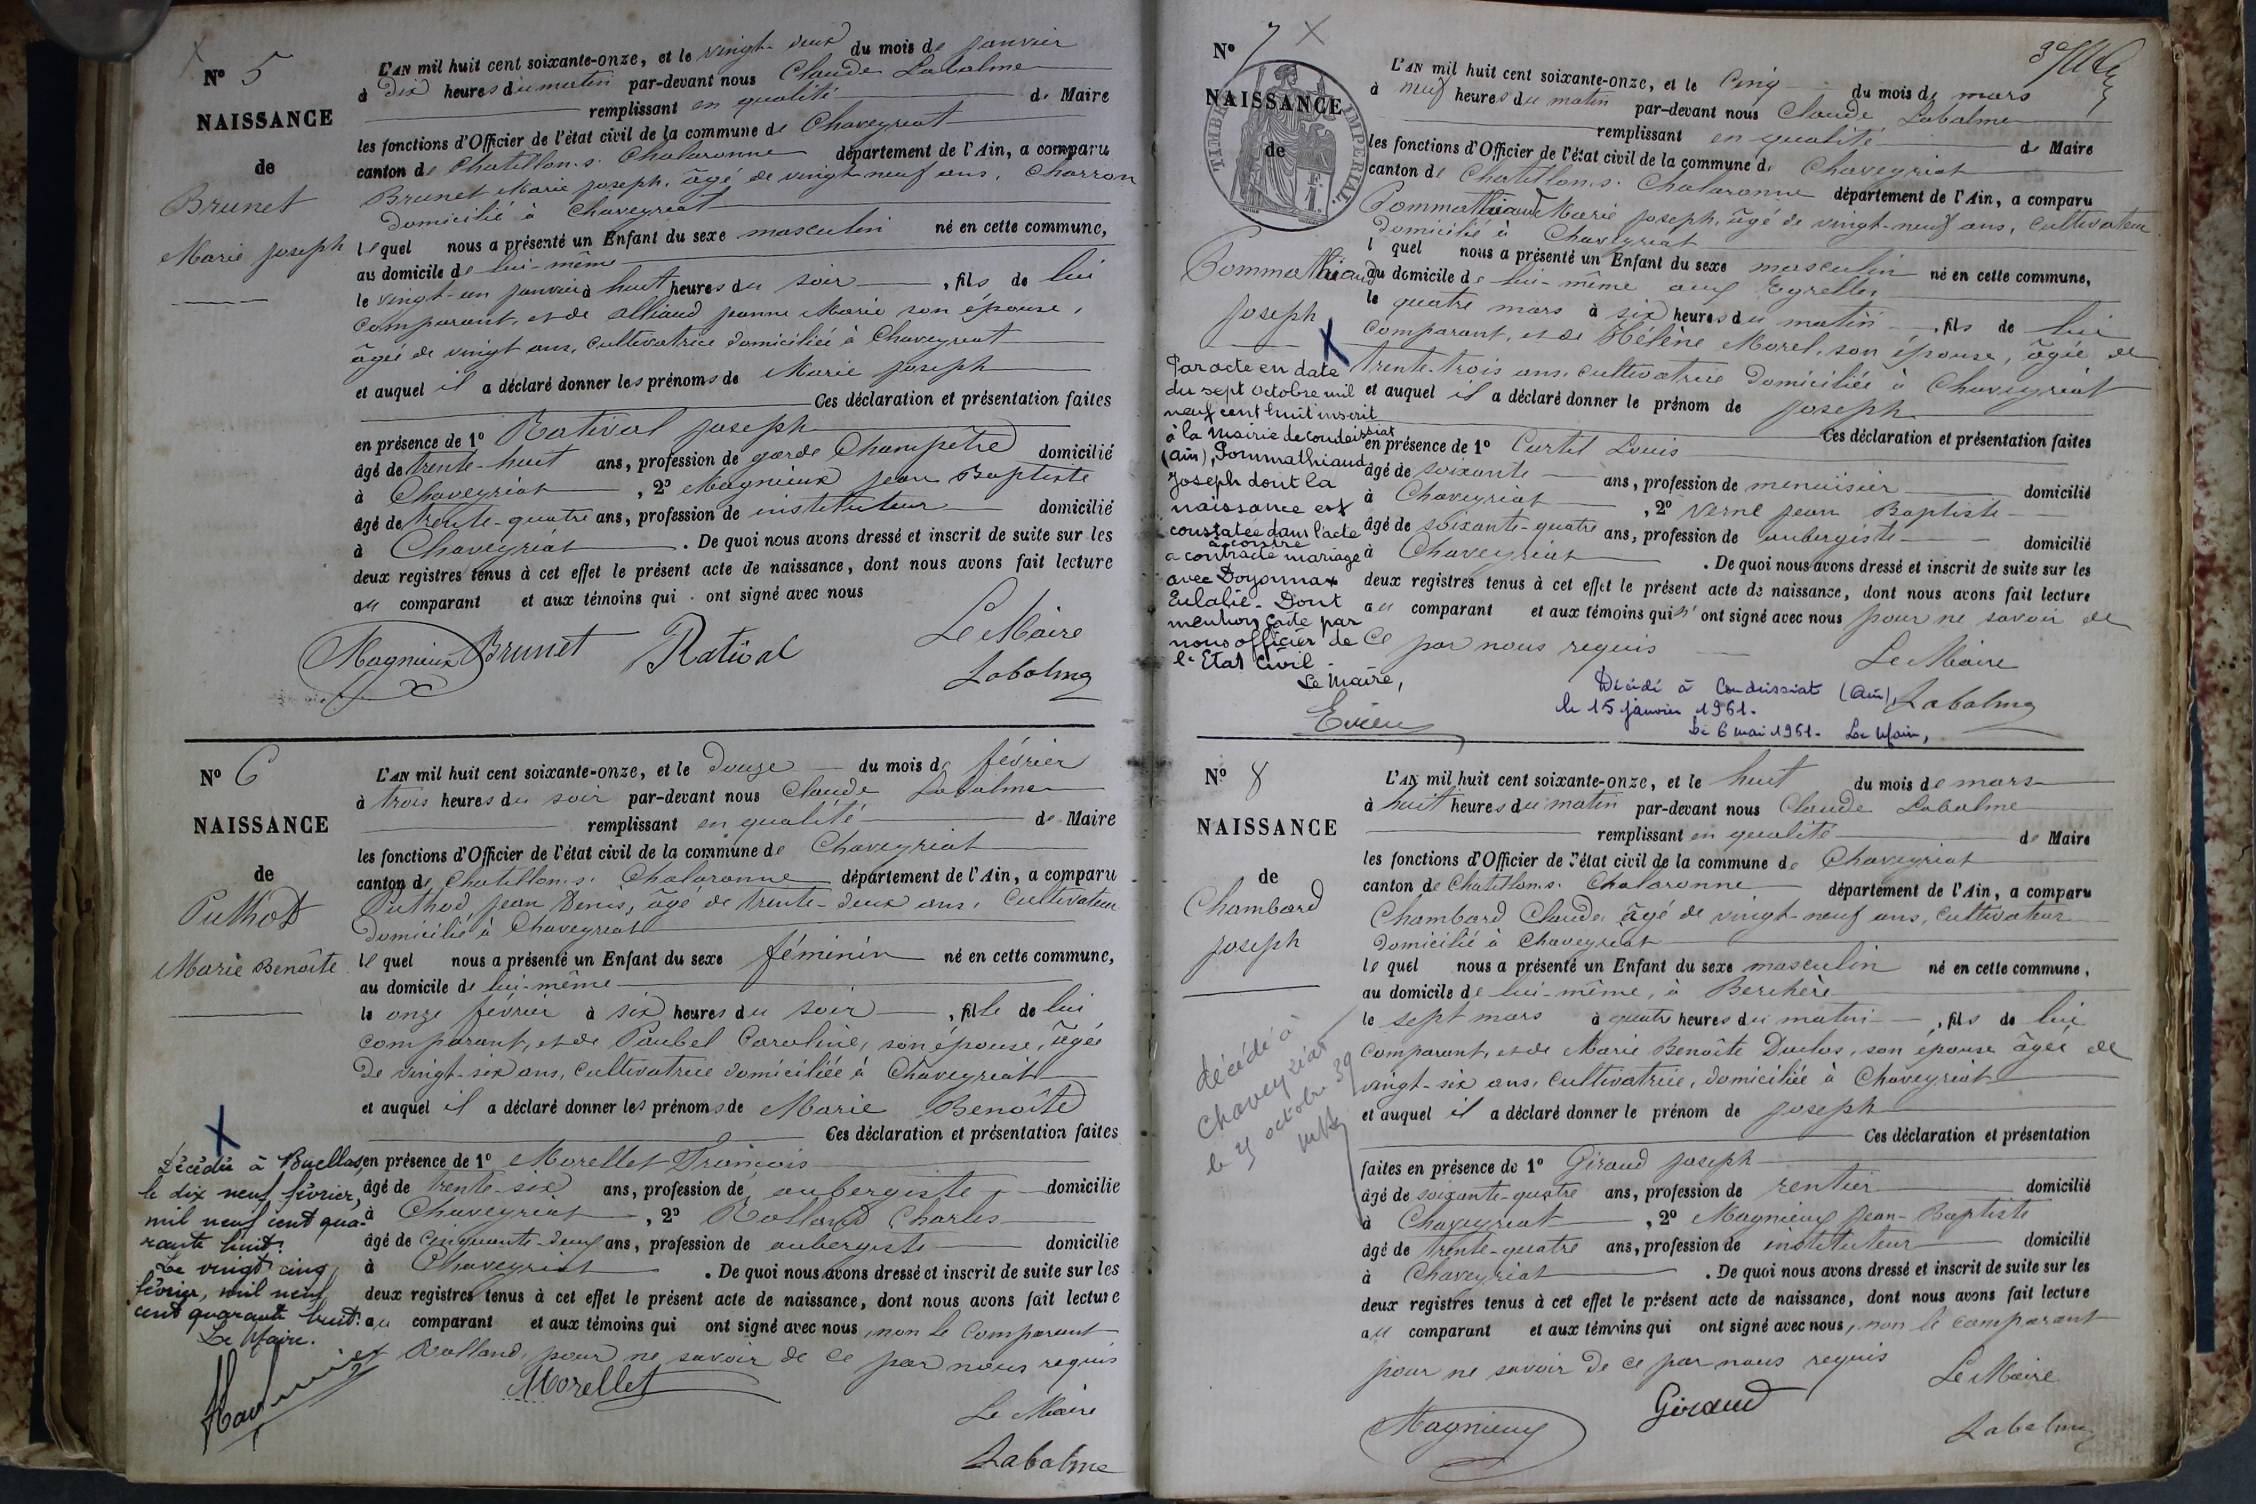 N° 5
NAISSANCE
de
Brunet
Marie Joseph
L'AN mil huit cent soixante-onze, et le vingt-deux du mois de Janvier
à Dix heures du matin par-devant nous Claude Labalme
remplissant en qualité de Maire
les fonctions d'Officier de l'état civil de la commune de Chaveyriat
canton de Chatillon s. Chalaronne département de l'Ain, a comparu
Brunet Marie Joseph, âgé de vingt-neuf ans, Charron
Domicilié à Chaveyriat
lequel nous a présenté un Enfant du sexe masculin né en cette commune,
au domicile de lui-même
le vingt-un Janvier à huit heures du soir, fils de lui
comparant, et de Alliaud Jeanne Marie son épouse,
âgée de vingt ans, cultivatrice domiciliée à Chaveyriat
et auquel il a déclaré donner les prénoms de Marie Joseph
Ces déclaration et présentation faites
en présence de 1° Rativat Joseph
âgé de trente-huit ans, profession de garde Champêtre domicilié
à Chaveyriat, 2° Magnieux Jean Baptiste
âgé de trente-quatre ans, profession de instituteur domicilié
à Chaveyriat. De quoi nous avons dressé et inscrit de suite sur les
deux registres tenus à cet effet le présent acte de naissance, dont nous avons fait lecture
au comparant et aux témoins qui ont signé avec nous
Magnieux Brunet Rativat
Le Maire
Labalme
N° 6
NAISSANCE
de
Puthod
Marie Benoîte
L'AN mil huit cent soixante-onze, et le Douze du mois de février
à trois heures du soir par-devant nous Claude Labalme
remplissant en qualité de Maire
les fonctions d'Officier de l'état civil de la commune de Chaveyriat
canton de Chatillon s. Chalaronne département de l'Ain, a comparu
Puthod Jean Denis, âgé de trente-deux ans, Cultivateur
Domicilié à Chaveyriat
lequel nous a présenté un Enfant du sexe féminin né en cette commune,
au domicile de lui-même
le onze février à six heures du soir, fille de lui
comparant, et de Paubel Caroline, son épouse, âgée
de vingt-six ans, Cultivatrice domiciliée à Chaveyriat
et auquel il a déclaré donner les prénoms de Marie Benoîte
Ces déclaration et présentation faites
en présence de 1° Morellet François
âgé de trente-six ans, profession de aubergiste domicilié
à Chaveyriat, 2° Rolland Charles
âgé de Cinquante-deux ans, profession de aubergiste domicilié
à Chaveyriat. De quoi nous avons dressé et inscrit de suite sur les
deux registres tenus à cet effet le présent acte de naissance, dont nous avons fait lecture
au comparant et aux témoins qui ont signé avec nous, non le Comparant
et Rolland, pour ne savoir de ce par nous requis
Morellet
Le Maire
Labalme
X
Décédée à Buellas,
le dix neuf février,
mil neuf cent qua-
rante huit.
Le vingt cinq
février, mil neuf
cent quarante huit.
Le Maire.
N° 7 X
NAISSANCE
de
TIMBRE IMPERIAL
Pommathiaud
Joseph
L'AN mil huit cent soixante-onze, et le Cinq du mois de mars
à neuf heures du matin par-devant nous Claude Labalme
remplissant en qualité de Maire
les fonctions d'Officier de l'état civil de la commune de Chaveyriat
canton de Chatillon s. Chalaronne département de l'Ain, a comparu
Pommathiaud Marie Joseph, âgé de vingt-neuf ans, Cultivateur
Domicilié à Chaveyriat
l quel nous a présenté un Enfant du sexe masculin né en cette commune,
au domicile de lui-même aux Eyrelles
le quatre mars à six heures du matin, fils de lui
comparant, et de Hélène Morel, son épouse, âgée de
trente-trois ans, cultivatrice Domiciliée à Chaveyriat
et auquel il a déclaré donner le prénom de Joseph
Ces déclaration et présentation faites
en présence de 1° Curtil Louis
âgé de soixante ans, profession de menuisier domicilié
à Chaveyriat, 2° Verne Jean Baptiste
âgé de soixante-quatre ans, profession de aubergiste domicilié
à Chaveyriat. De quoi nous avons dressé et inscrit de suite sur les
deux registres tenus à cet effet le présent acte de naissance, dont nous avons fait lecture
au comparant et aux témoins qui n'ont signé avec nous pour ne savoir de
ce par nous requis
Le Maire
Labalme
X
Par acte en date
du sept octobre mil
neuf cent huit inscrit
à la Mairie de Condeissiat
(Ain), Pommathiaud
Joseph dont la
naissance est
constatée dans l'acte
ci contre
a contracté mariage
avec Doyonnax
Eulalie. Dont
mention faite par
nous officier de
l'Etat Civil.
Le Maire,
Décédé à Condeissiat (Ain),
le 15 janvier 1961.
Le 6 mai 1961. Le Maire,
N° 8
NAISSANCE
de
Chambard
Joseph
L'AN mil huit cent soixante-onze, et le huit du mois de mars
à huit heures du matin par-devant nous Claude Labalme
remplissant en qualité de Maire
les fonctions d'Officier de l'état civil de la commune de Chaveyriat
canton de Chatillon s. Chalaronne département de l'Ain, a comparu
Chambard Claude, âgé de vingt-neuf ans, cultivateur
Domicilié à Chaveyriat
lequel nous a présenté un Enfant du sexe masculin né en cette commune,
au domicile de lui-même, à Berchère
le sept mars à quatre heures du matin, fils de lui
comparant, et de Marie Benoîte Duclos, son épouse âgée de
vingt-six ans, Cultivatrice, domiciliée à Chaveyriat
et auquel il a déclaré donner le prénom de Joseph
Ces déclaration et présentation
faites en présence de 1° Giraud Joseph
âgé de soixante-quatre ans, profession de rentier domicilié
à Chaveyriat, 2° Magnieux Jean-Baptiste
âgé de trente-quatre ans, profession de instituteur domicilié
à Chaveyriat. De quoi nous avons dressé et inscrit de suite sur les
deux registres tenus à cet effet le présent acte de naissance, dont nous avons fait lecture
au comparant et aux témoins qui ont signé avec nous, non le comparant
pour ne savoir de ce par nous requis
Magnieux Giraud
Le Maire
Labalme
décédé à
Chaveyriat
octobre 39